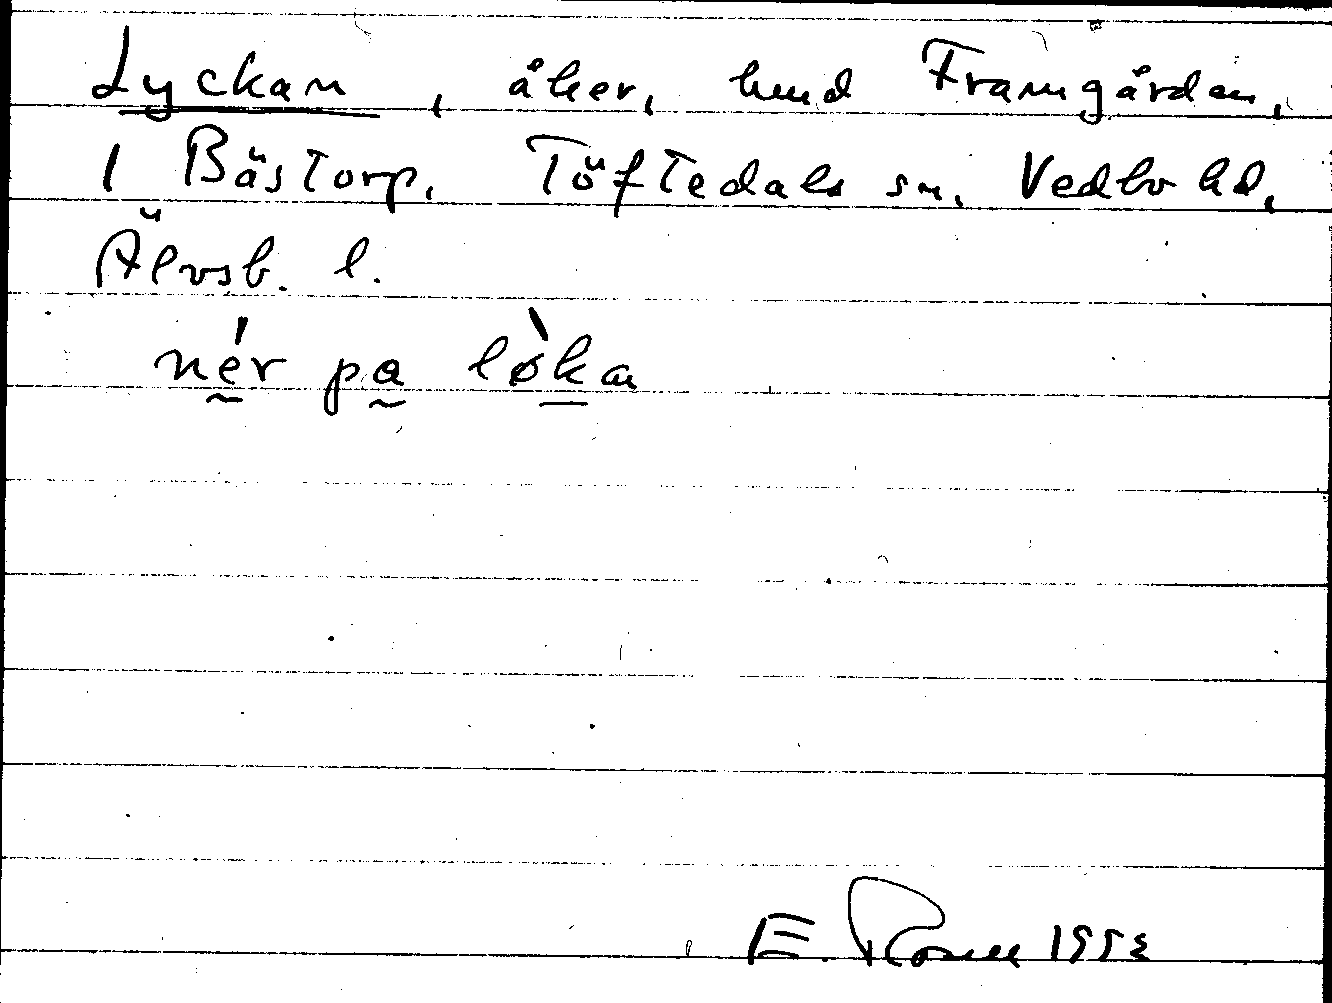 Lyckan, åker, hmd Framgården,
1 Bästorp. Töftedals sn. Vedbo hd,
Älvsb. l.
nér pa lø̀ka
E. Rosell 1953